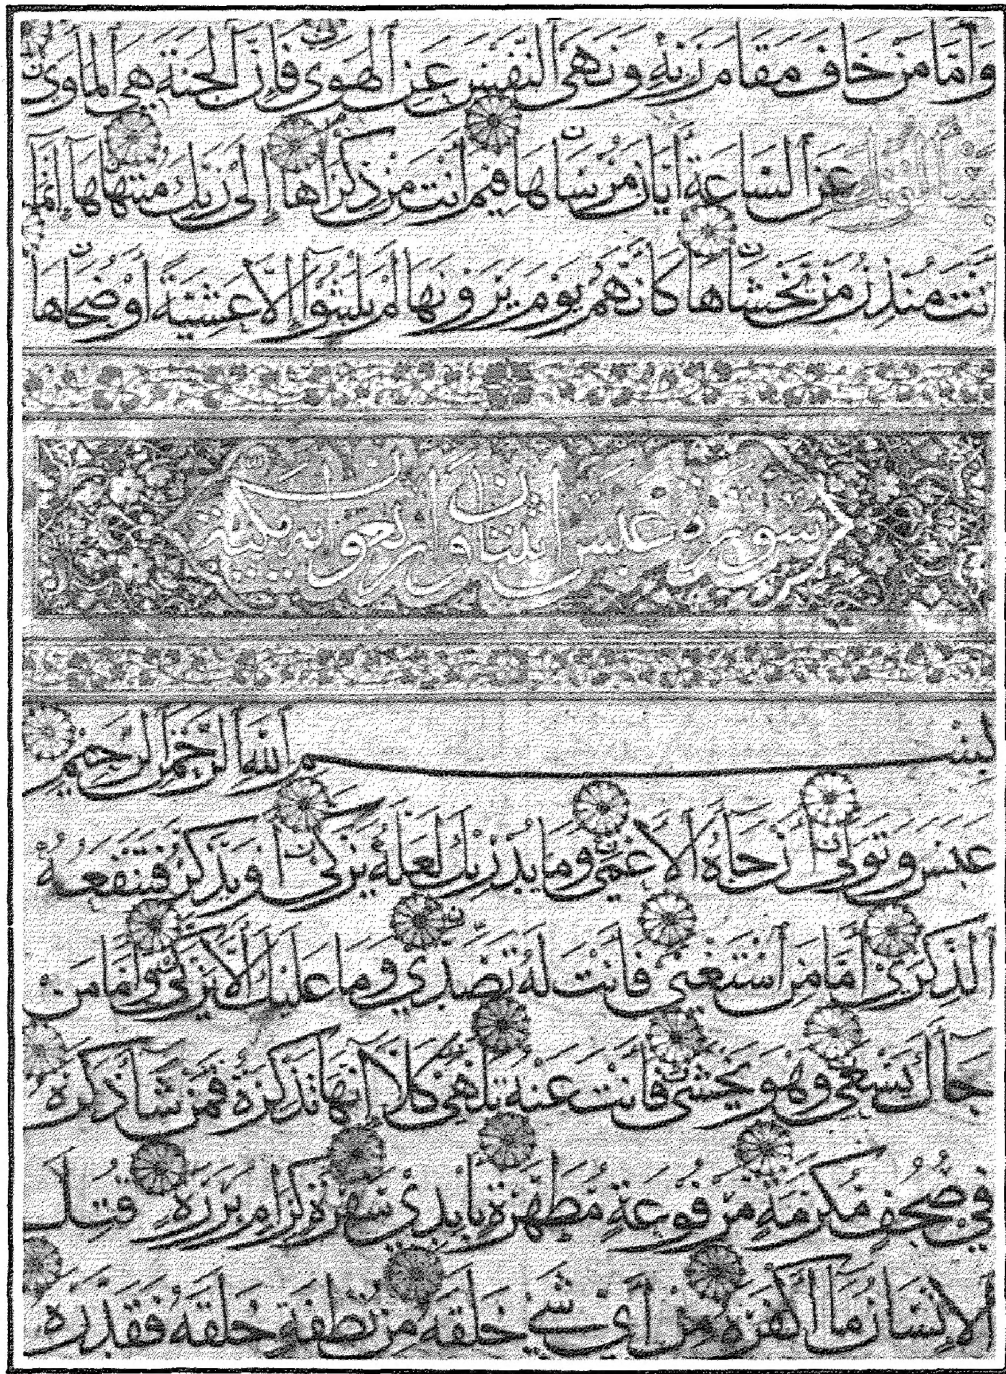 وأما من خاف مقام ربه ونهى النفس عن الهوى فإن الجنة هي المأوى
عن الساعة أيان مرساها فيم أنت من ذكراها إلى ربك منتهاها إنما
أنت منذر من يخشاها كأنهم يوم يرونها لم يلبثوا إلا عشية أو ضحاها
سورة عبس اثنتان وأربعون آية مكية
بسم الله الرحمن الرحيم
عبس وتولى أن جاه الأعمى وما يدريك لعله يزكى أو يذكر فتنفعه
الذكرى أما من استغنى فأنت له تصدى وما عليك ألا يزكى وأما من
جاك يسعى وهو يخشى فأنت عنه تلهى كلا إنها تذكرة فمن شا ذكره
في صحف مكرمة مرفوعة مطهرة بأيدي سفرة كرام بررة قتل
الإنسان ما أكفره من أي شي خلقه من نطفة خلقه فقدره